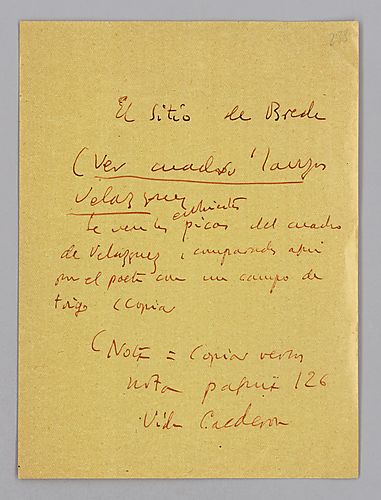 El Sitio de Breda
(Ver cuadro lanzas
Velazquez
Se ven las picas del cuadro
de Velazquez, comparadas aqui
por el poeta con un campo de
trigo (copiar
(Nota = Copiar versos
nota pagina 126
Vida Calderon